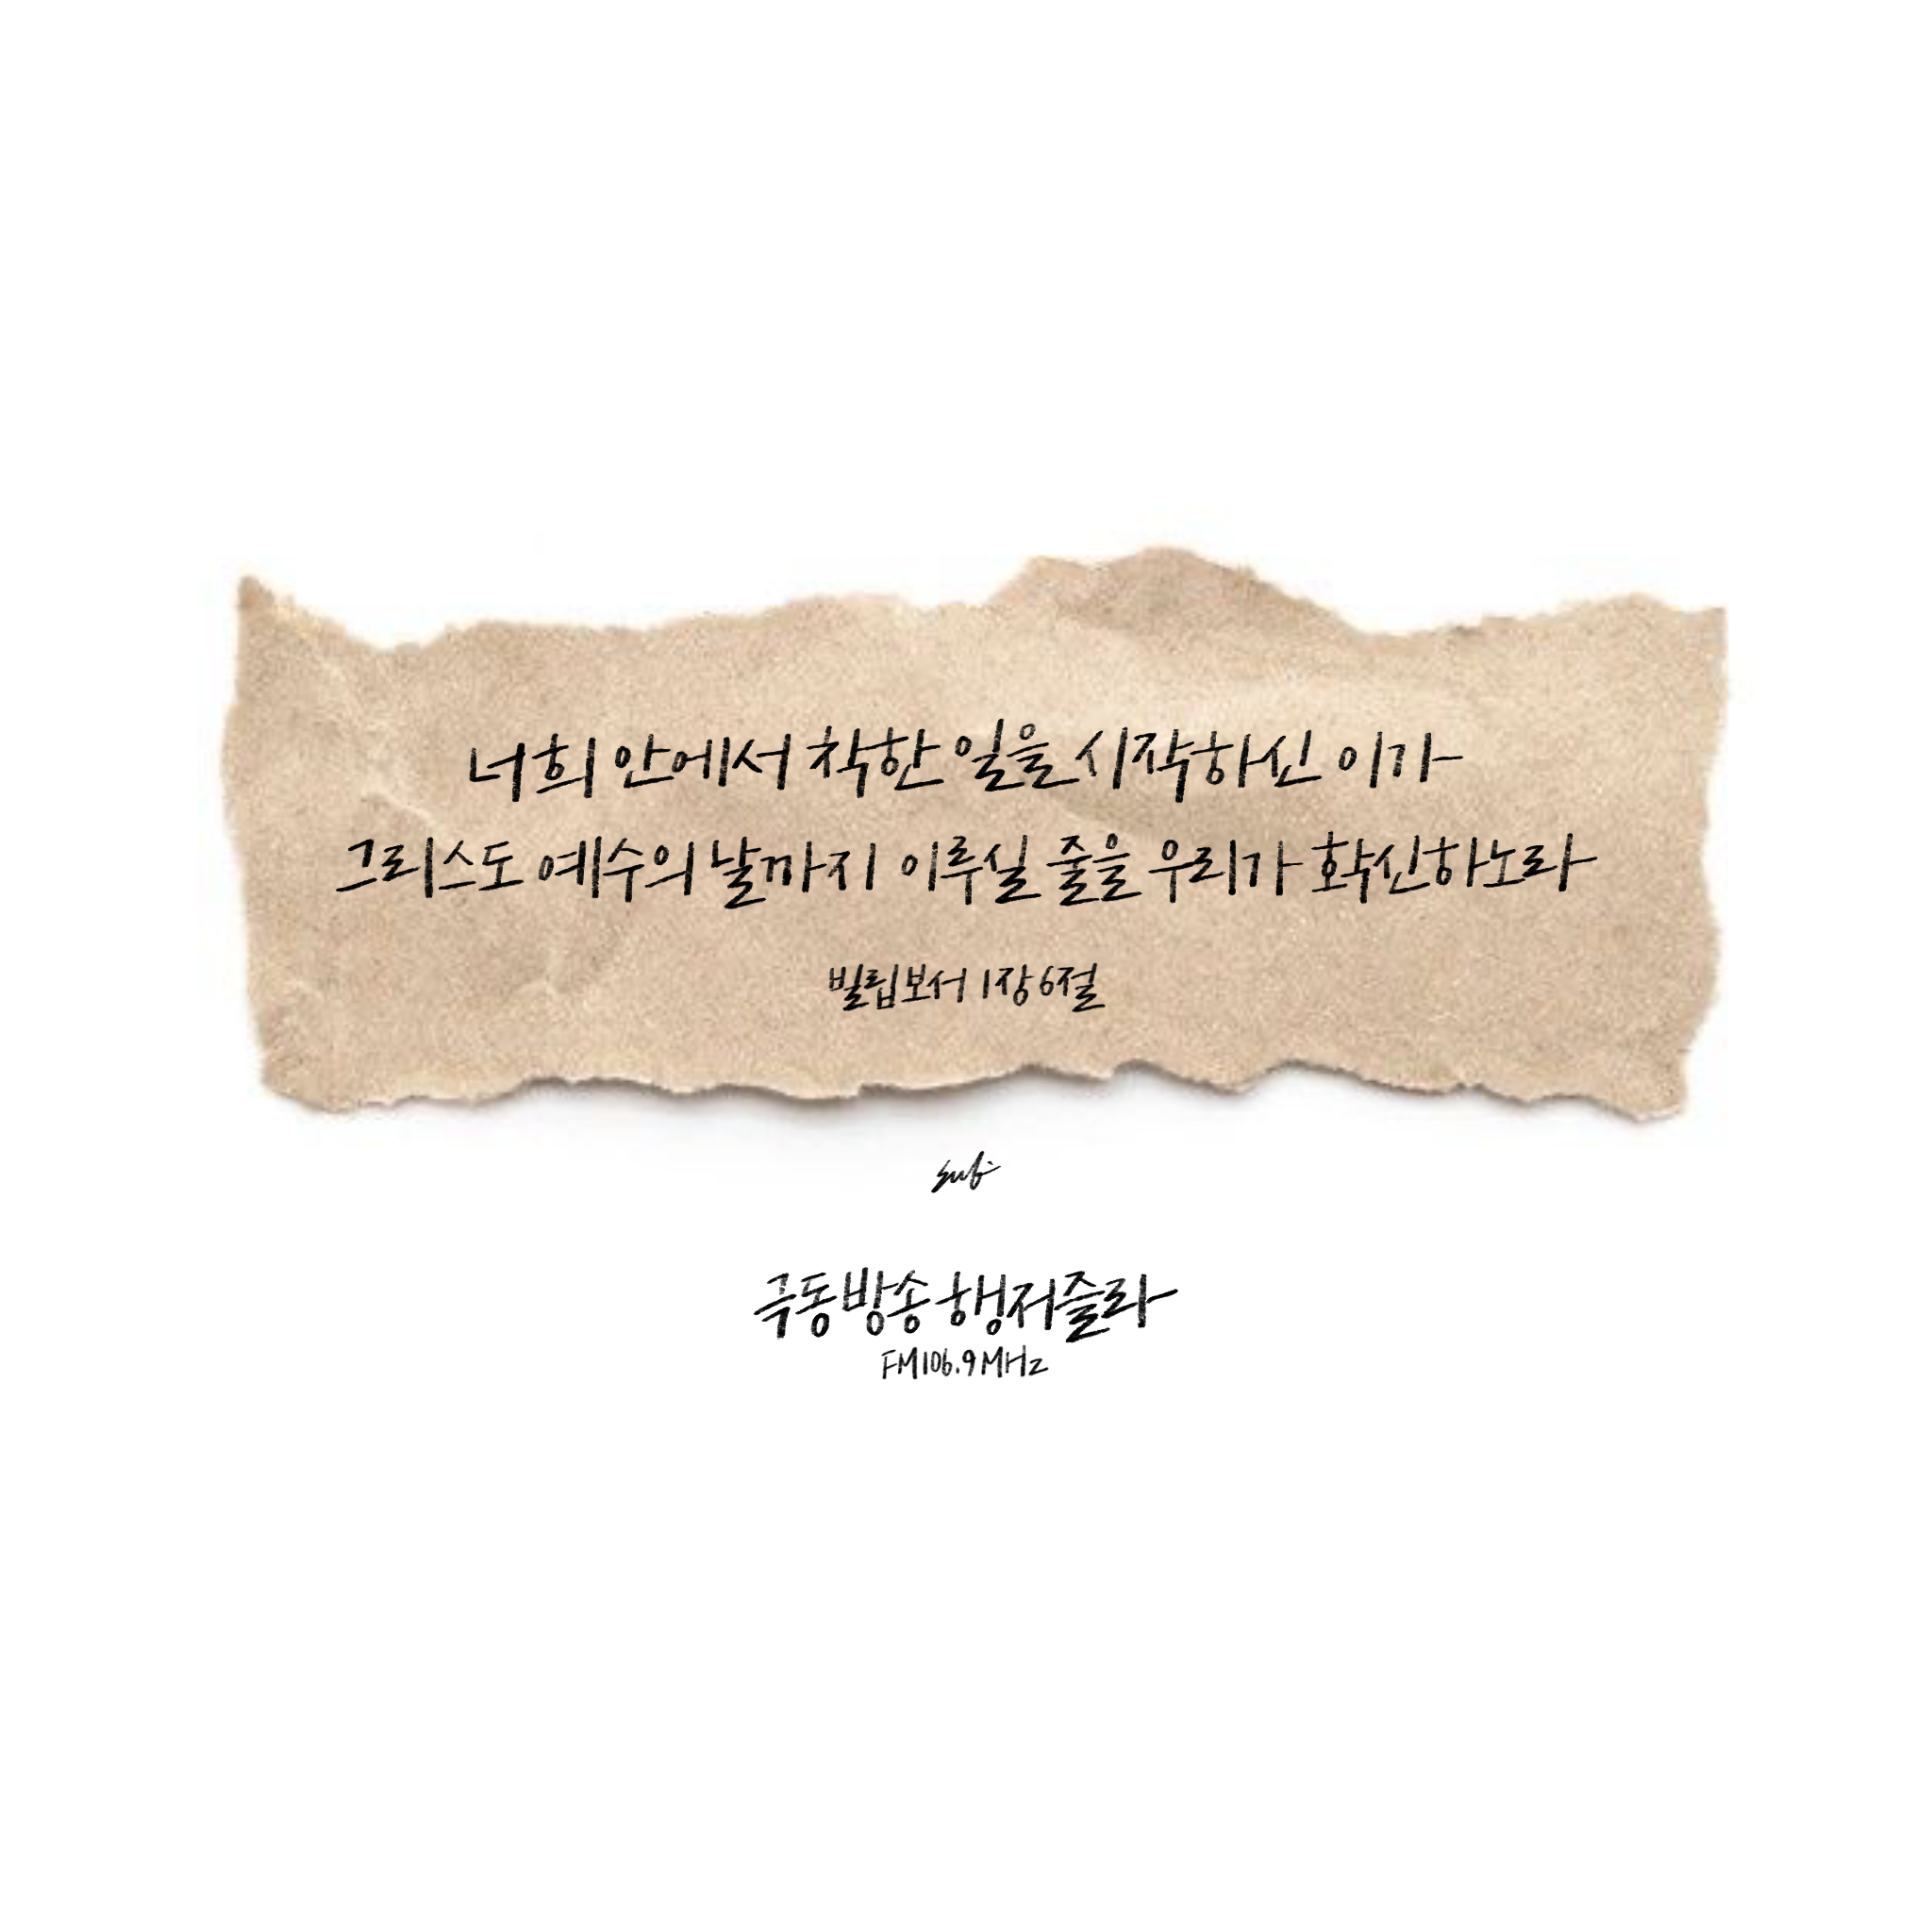 너희 안에서 착한 일을 시작하신 이가
그리스도 예수의 날까지 이루실 줄을 우리가 확신하노라
빌립보서 1장 6절
subi
극동방송 행저즐라
FM106.9MHz